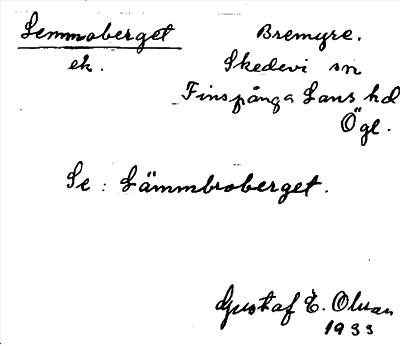 Lemmoberget Bremyre.
ek. Skedevi sn
Finspånga Läns hd
Ögl.
Se: Lämmbroberget.
Gustaf E. Olsson
1933